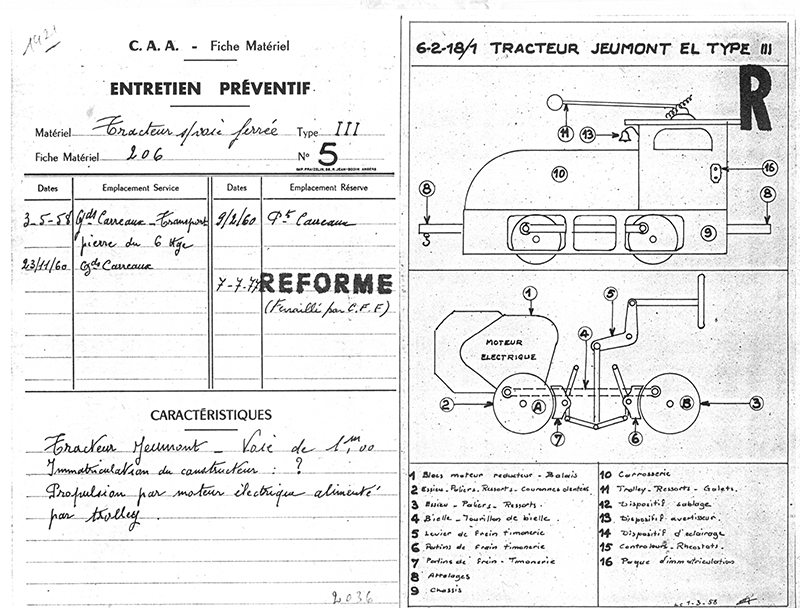 1921
C. A. A. - Fiche Matériel
ENTRETIEN PRÉVENTIF
Matériel Tracteur s/voie ferrée Type III
Fiche Matériel 206 N° 5
IMP. FRAIZELIN, 58, R. JEAN-BODIN ANGERS
Dates Emplacement Service Dates Emplacement Réserve
3-5-58 Gds Carreaux - Transport 9/2/60 Pts Carreaux
pierre du 6 Age
23/11/60 Gds Carreaux
7-7-77 REFORME
(Ferraillé par C.F.F)
CARACTÉRISTIQUES
Tracteur Jeumont - Voie de 1m,00
Immatriculation du constructeur : ?
Propulsion par moteur électrique alimenté
par trolley.
2036
6-2-18/1 TRACTEUR JEUMONT EL TYPE III
R
11 13
10 16
8 8
9
1 5
4
MOTEUR
ELECTRIQUE
2 A B 3
7 6
1 Blocs moteur reducteur - Balais
2 Essieu - Paliers - Ressorts - Couronnes dentées
3 Essieu - Paliers - Ressorts.
4 Bielle - Tourillon de bielle.
5 Levier de frein timonerie
6 Patins de frein timonerie
7 Patins de frein - Timonerie
8 Attelages
9 Chassis
10 Carrosserie
11 Trolley - Ressorts - Galets.
12 Dispositif sablage
13 Dispositif avertisseur.
14 Dispositif d'eclairage
15 Controleurs - Rheostats.
16 Plaque d'immatriculation
1-3-58